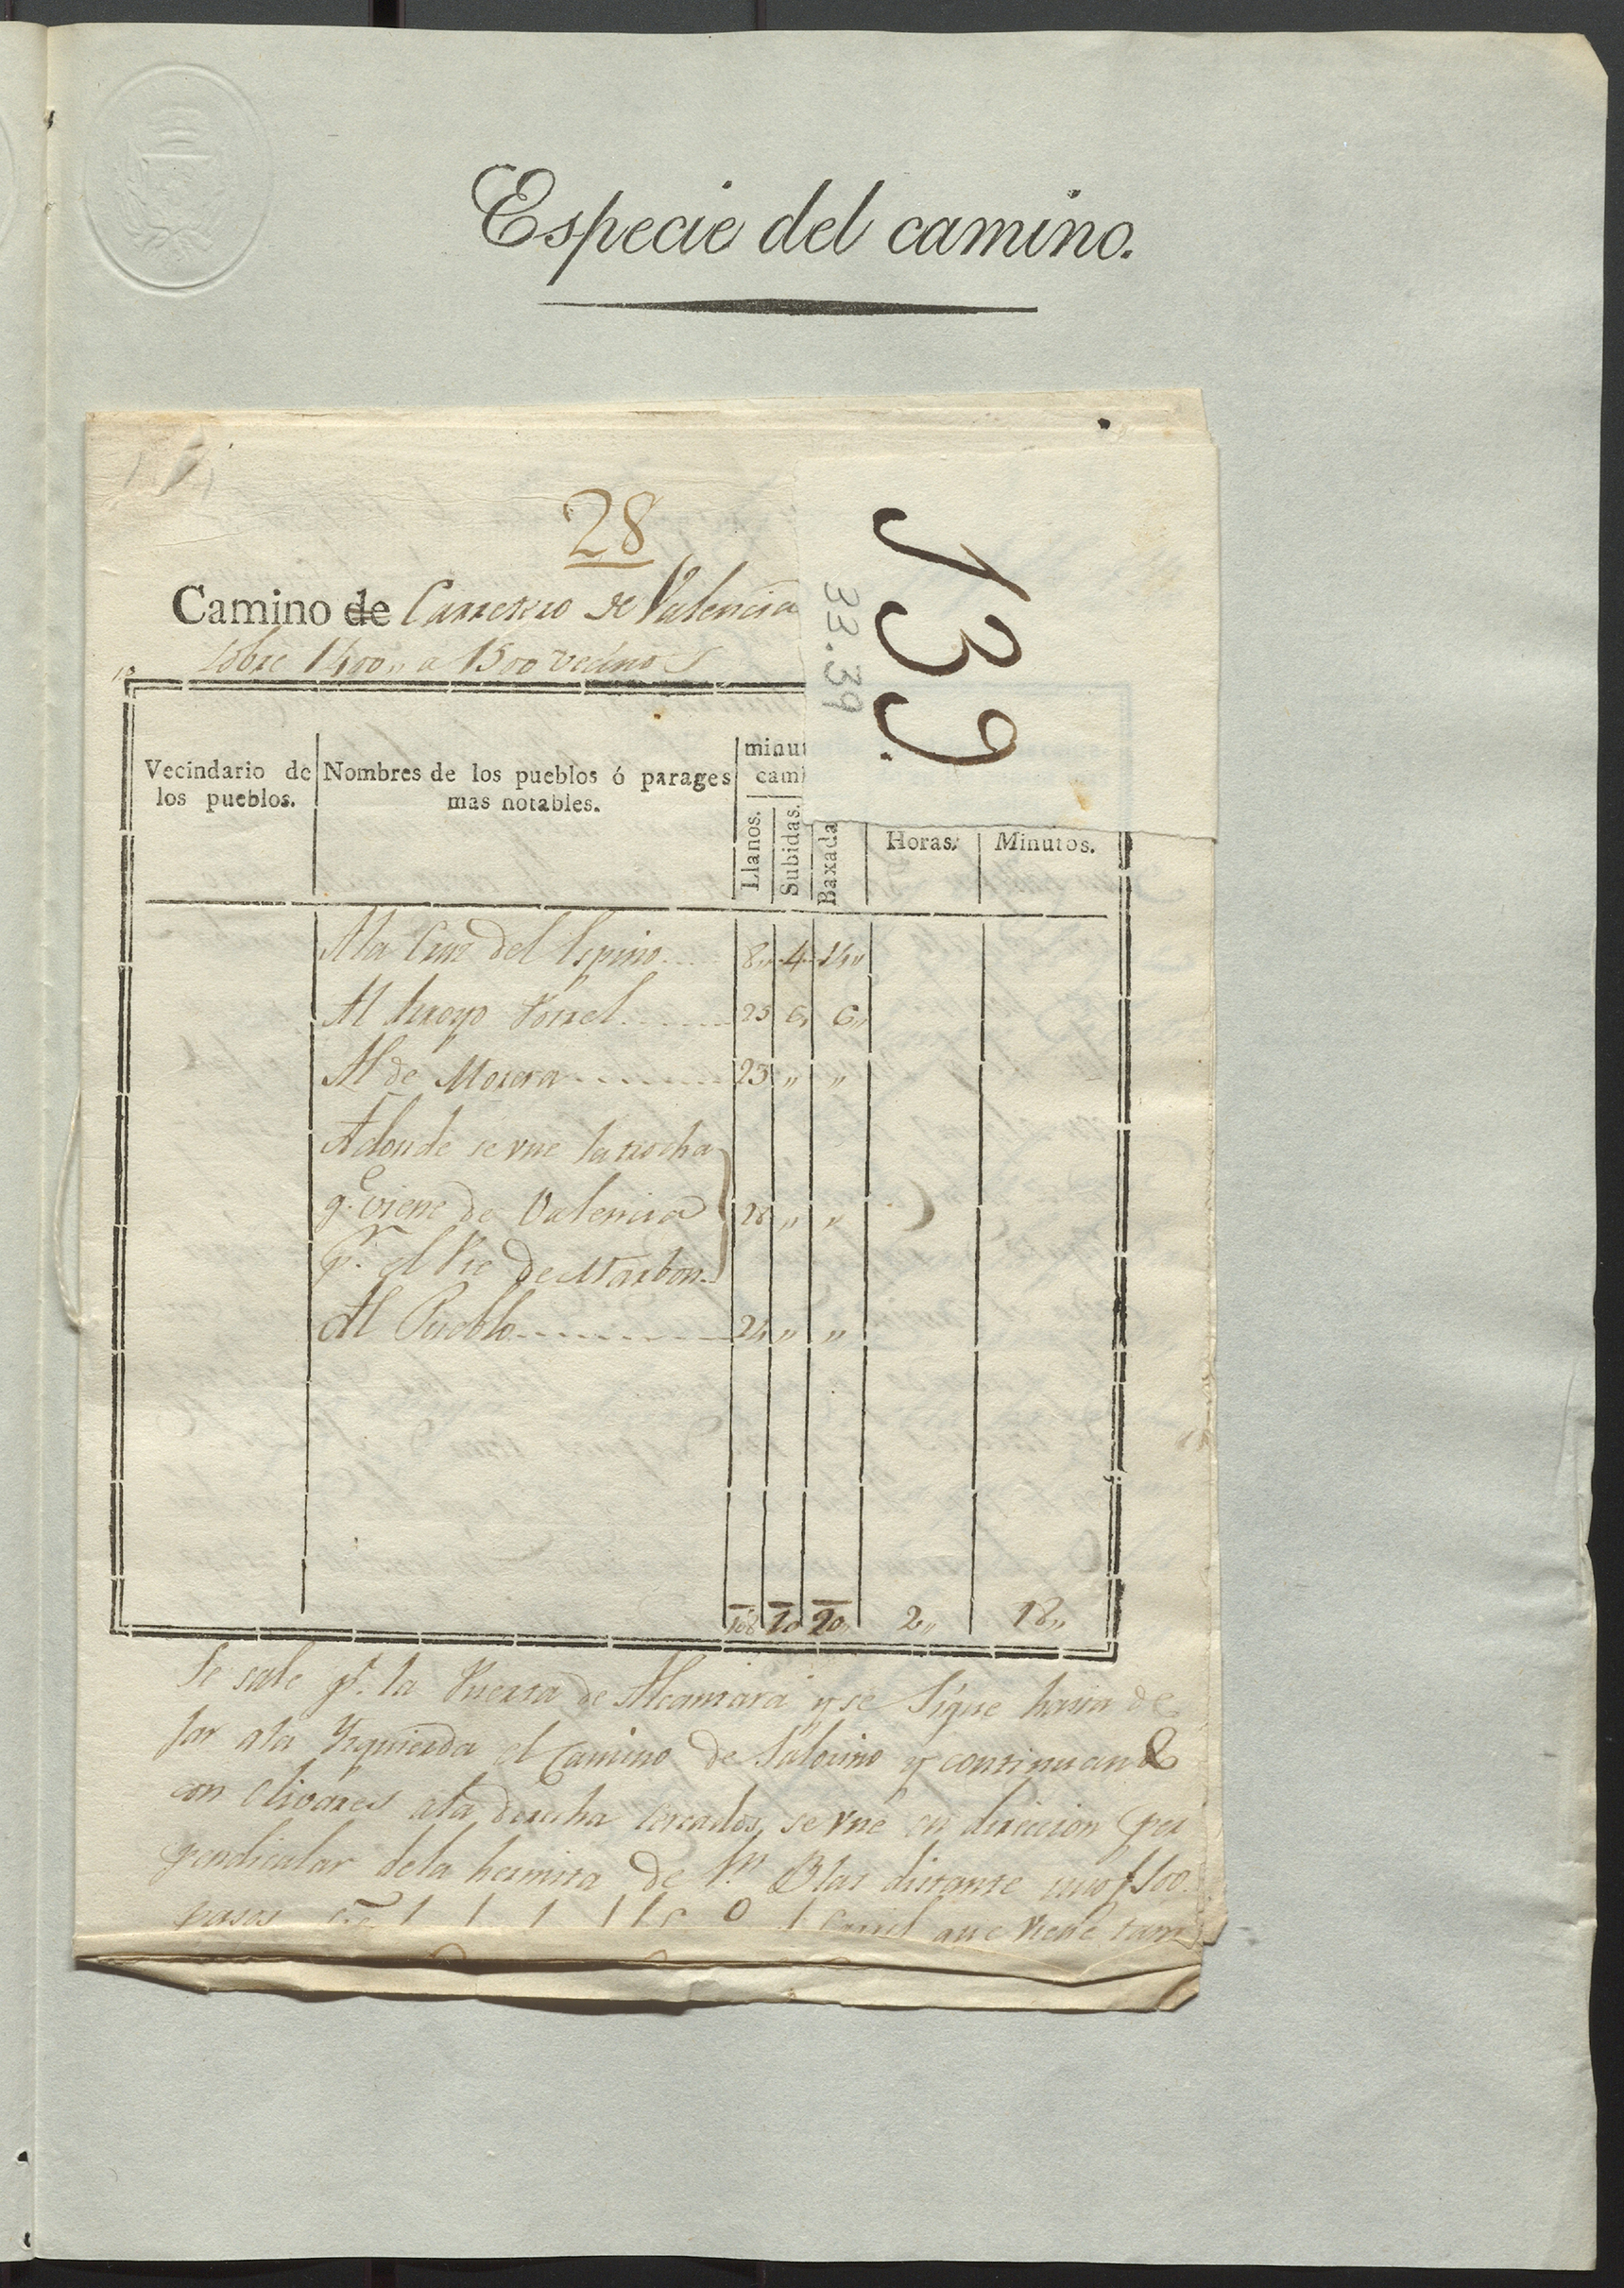 Especie del camino.
28
139.
33.39
Camino de Carretero de Valencia
sobre 1400,, a 1500 vecinos
Vecindario de los pueblos.
Nombres de los pueblos ó parages mas notables.
minut
cami
Llanos.
Subidas.
Baxada
Horas.
Minutos.
A la Cruz del Espino.... 8,, 4 14,,
Al Arroyo Porrel........ 25 6,, 6,,
Al de Morera........... 23 ,, ,,
Adonde se vne la trocha
q.e viene de Valencia 28 ,, ,,
p.r el Pie de Marbon..
Al Pueblo.............. 24 ,, ,,
108 10 20,, 2,, 18,,
Se sale p.r la Puerta de Alcantara y se sigue hasta de
jar ala Yzquierda el Camino de Salorino y continuando
con Olivares ala derecha Cercados, se vne en direccion per
pendicular dela hermita de S.n Blas distante unos 500
pasos
que viene tam